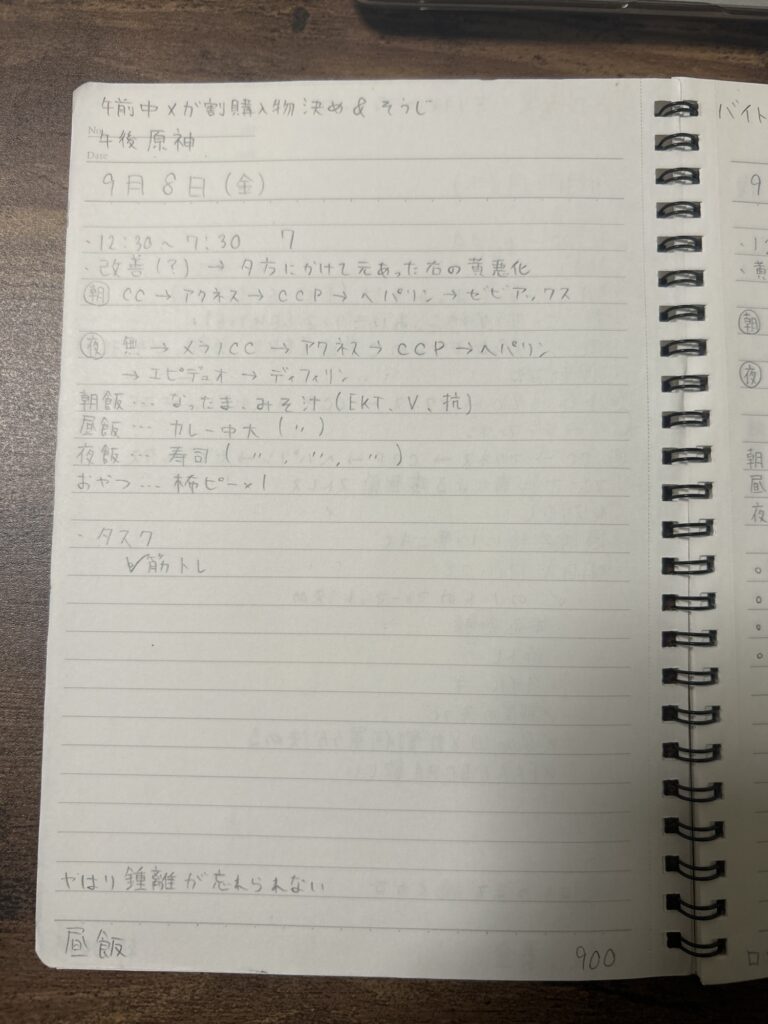 午前中 メガ割購入物決め & そうじ
No.
午後 原神
Date
9月8日(金)
・12:30〜7:30 7
・改善(?) → 夕方にかけて元あった右の黄悪化
朝 CC → アクネス → CCP → ヘパリン → ゼビアックス
夜 無 → メラノCC → アクネス → CCP → ヘパリン
→ エピデュオ → ディフィリン
朝飯… なったま、みそ汁 (EKT、V、抗)
昼飯… カレー中大 ( 〃 )
夜飯… 寿司 ( 〃 、〃 、〃 )
おやつ… 柿ピー×1
・タスク
✓筋トレ
やはり鍾離が忘れられない
昼飯 900
バイト
9
朝
夜
朝
昼
夜